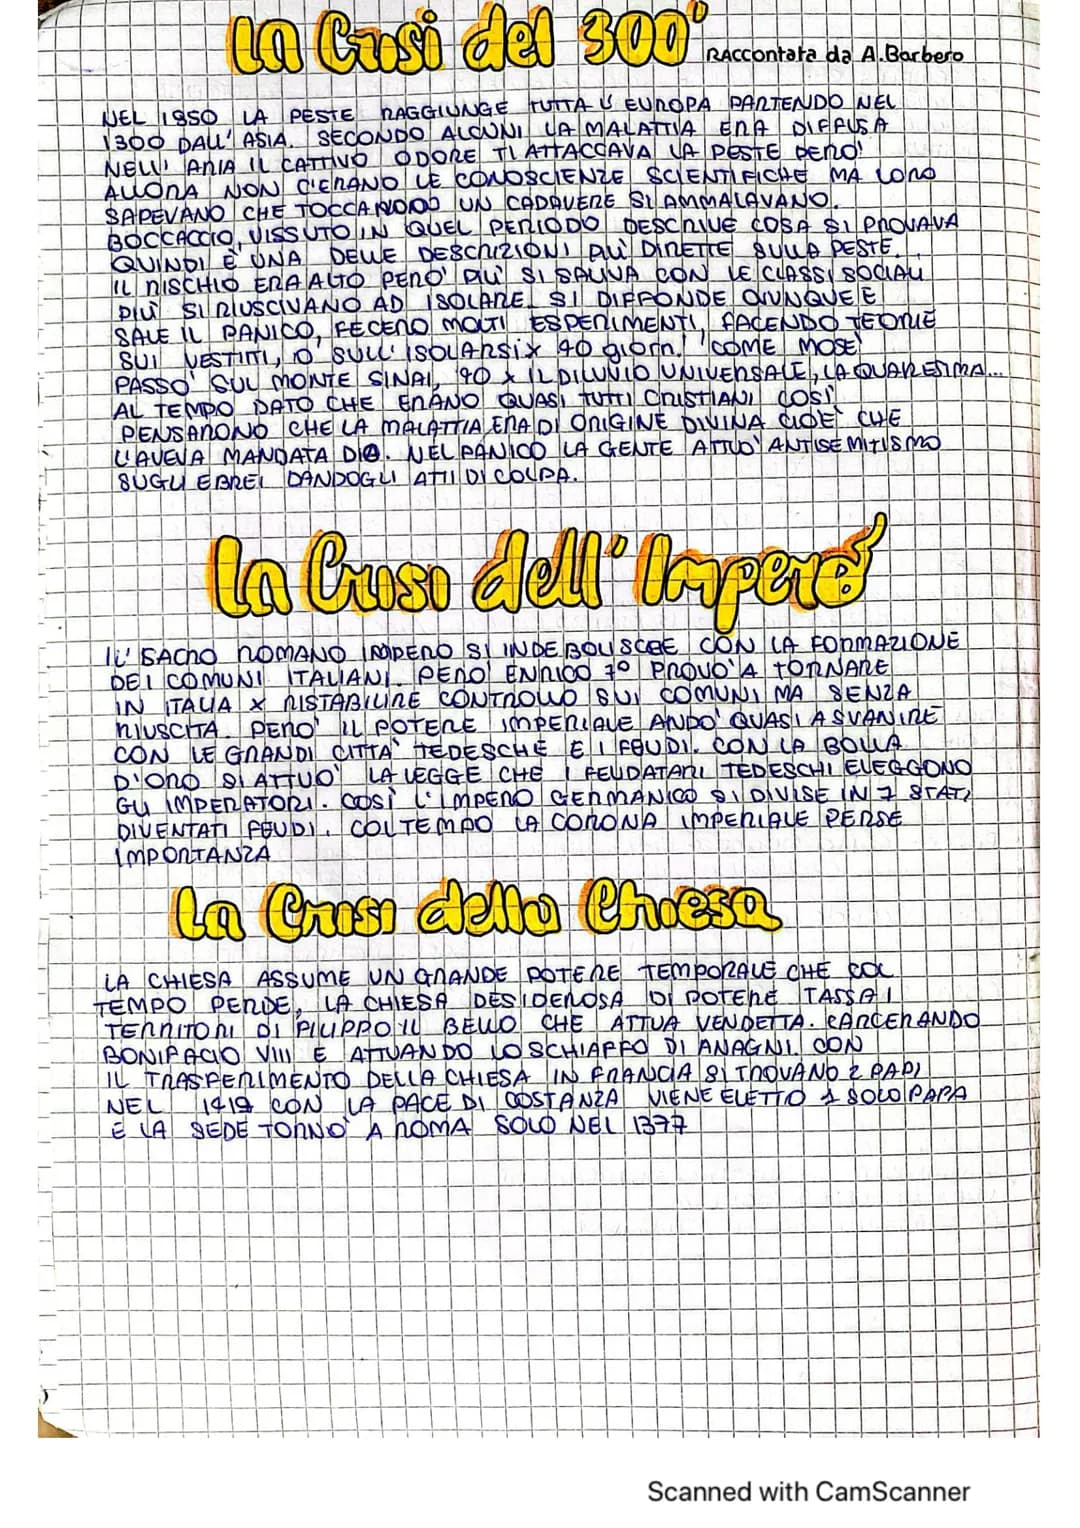 La Crisi del 300'
Raccontata da A.Barbero
NEL 1350 LA PESTE RAGGIUNGE TUTTA L' EUROPA PARTENDO NEL
1300 DALL' ASIA. SECONDO ALCUNI LA MALATTIA ERA DIFFUSA
NELL' ARIA IL CATTIVO ODORE TI ATTACCAVA LA PESTE PERO'
ALLORA NON C'ERANO LE CONOSCIENZE SCIENTIFICHE MA LORO
SAPEVANO CHE TOCCANDO UN CADAVERE SI AMMALAVANO.
BOCCACCIO, VISSUTO IN QUEL PERIODO DESCRIVE COSA SI PROVAVA
QUINDI È UNA DELLE DESCRIZIONI PIÙ DIRETTE SULLA PESTE.
IL RISCHIO ERA ALTO PERO' PIÙ SI SALIVA CON LE CLASSI SOCIALI
PIÙ SI RIUSCIVANO AD ISOLARE. SI DIFFONDE OVUNQUE E
SALE IL PANICO, FECERO MOLTI ESPERIMENTI, FACENDO TEORIE
SUI VESTITI, O SULL' ISOLARSI X 40 giorni "COME MOSE'
PASSO' SUL MONTE SINAI, 40 X IL DILUVIO UNIVERSALE, LA QUARESIMA...
AL TEMPO DATO CHE ERANO QUASI TUTTI CRISTIANI COSÌ
PENSARONO CHE LA MALATTIA ERA DI ORIGINE DIVINA CIOÈ CHE
L'AVEVA MANDATA DIO. NEL PANICO LA GENTE ATTUO' ANTISEMITISMO
SUGLI EBREI DANDOGLI ATTI DI COLPA.
La Crisi dell' Impero
IL SACRO ROMANO IMPERO SI INDEBOLISCE CON LA FORMAZIONE
DEI COMUNI ITALIANI. PERO' ENRICO 7° PROVO' A TORNARE
IN ITALIA X RISTABILIRE CONTROLLO SUI COMUNI MA SENZA
RIUSCITA. PERO' IL POTERE IMPERIALE ANDO' QUASI A SVANIRE
CON LE GRANDI CITTÀ TEDESCHE E I FEUDI. CON LA BOLLA
D'ORO SI ATTUO' LA LEGGE CHE I FEUDATARI TEDESCHI ELEGGONO
GLI IMPERATORI. COSÌ L'IMPERO GERMANICO SI DIVISE IN 7 STATI
DIVENTATI FEUDI. COL TEMPO LA CORONA IMPERIALE PERSE
IMPORTANZA
La Crisi della Chiesa
LA CHIESA ASSUME UN GRANDE POTERE TEMPORALE CHE COL
TEMPO PERDE, LA CHIESA DESIDEROSA DI POTERE TASSA I
TERRITORI DI FILIPPO IL BELLO CHE ATTUA VENDETTA. CARCERANDO
BONIFACIO VIII E ATTUANDO LO SCHIAFFO DI ANAGNI. CON
IL TRASFERIMENTO DELLA CHIESA IN FRANCIA SI TROVANO 2 PAPI
NEL 1419 CON LA PACE DI COSTANZA VIENE ELETTO 1 SOLO PAPA
E LA SEDE TORNO' A ROMA SOLO NEL 1377
Scanned with CamScanner